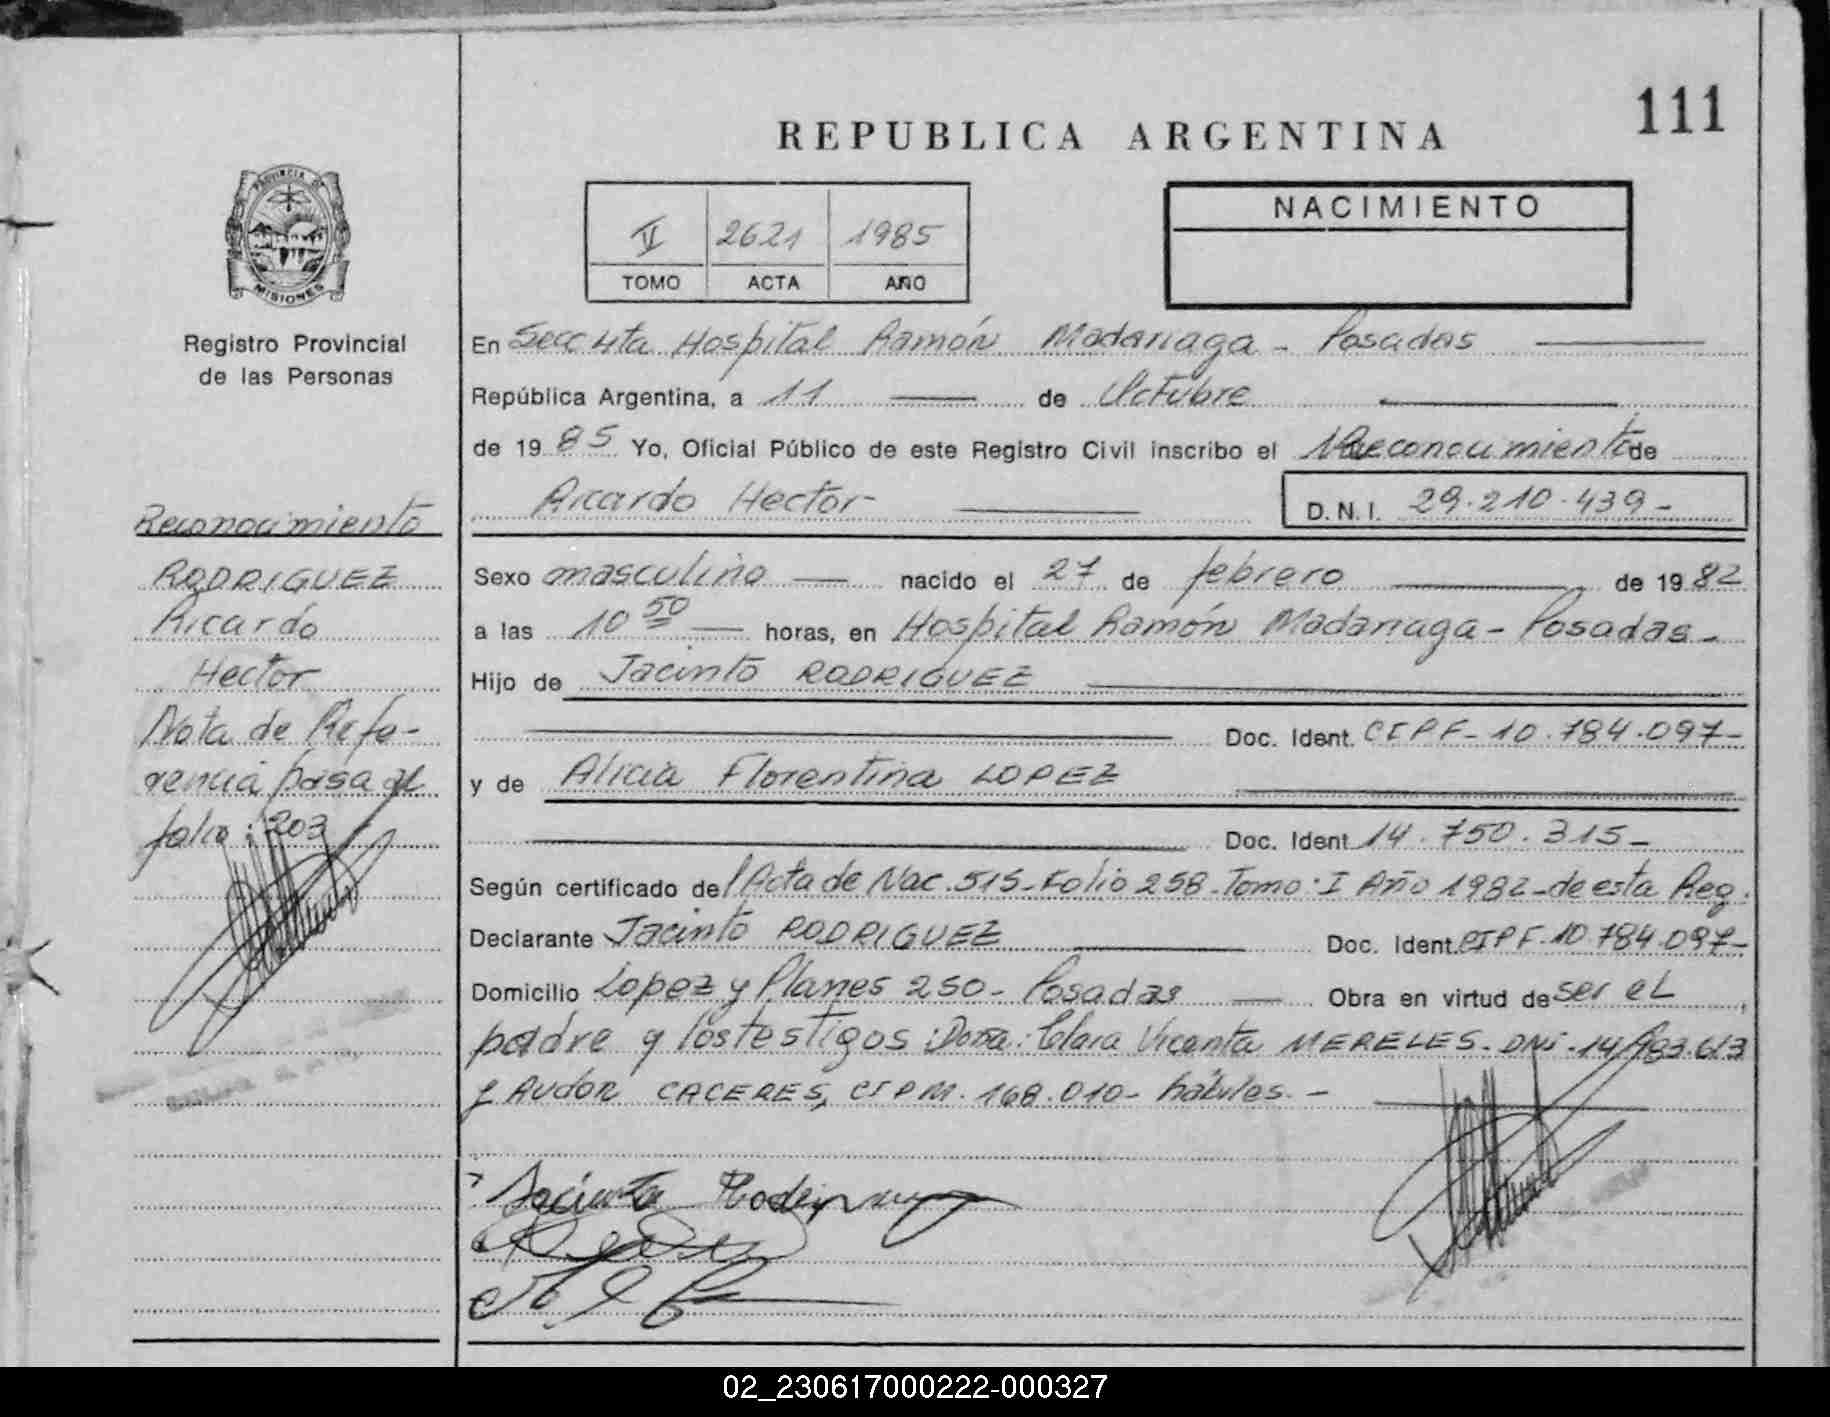 111
REPUBLICA ARGENTINA
PROVINCIA DE
MISIONES
Registro Provincial
de las Personas
II 2621 1985
TOMO ACTA AÑO
NACIMIENTO
En Secc 4ta Hospital Ramón Madariaga - Posadas
República Argentina, a 11 de Octubre
de 1985 Yo, Oficial Público de este Registro Civil inscribo el Reconocimiento de
Ricardo Hector D.N.I. 29.210.439-
Sexo masculino nacido el 27 de febrero de 1982
a las 10 50 horas, en Hospital Ramón Madariaga - Posadas-
Hijo de Jacinto RODRIGUEZ
Doc. Ident. CIPF-10.784.097-
y de Alicia Florentina LOPEZ
Doc. Ident. 14.750.315-
Según certificado del Acta de Nac. 515-Folio 258-Tomo: I Año 1982-de esta Reg.
Declarante Jacinto RODRIGUEZ Doc. Ident. CIPF-10.784.097-
Domicilio Lopez y Planes 250- Posadas Obra en virtud de ser el
padre y los testigos: Doña: Clara Vicenta MERELES-DNI-14.983.613
y Audon CACERES, CIPM.168.010- hábiles.-
Jacinto Rodriguez
Reconocimiento
RODRIGUEZ
Ricardo
Hector
Nota de Refe-
rencia pasa al
folio: 203
02_230617000222-000327